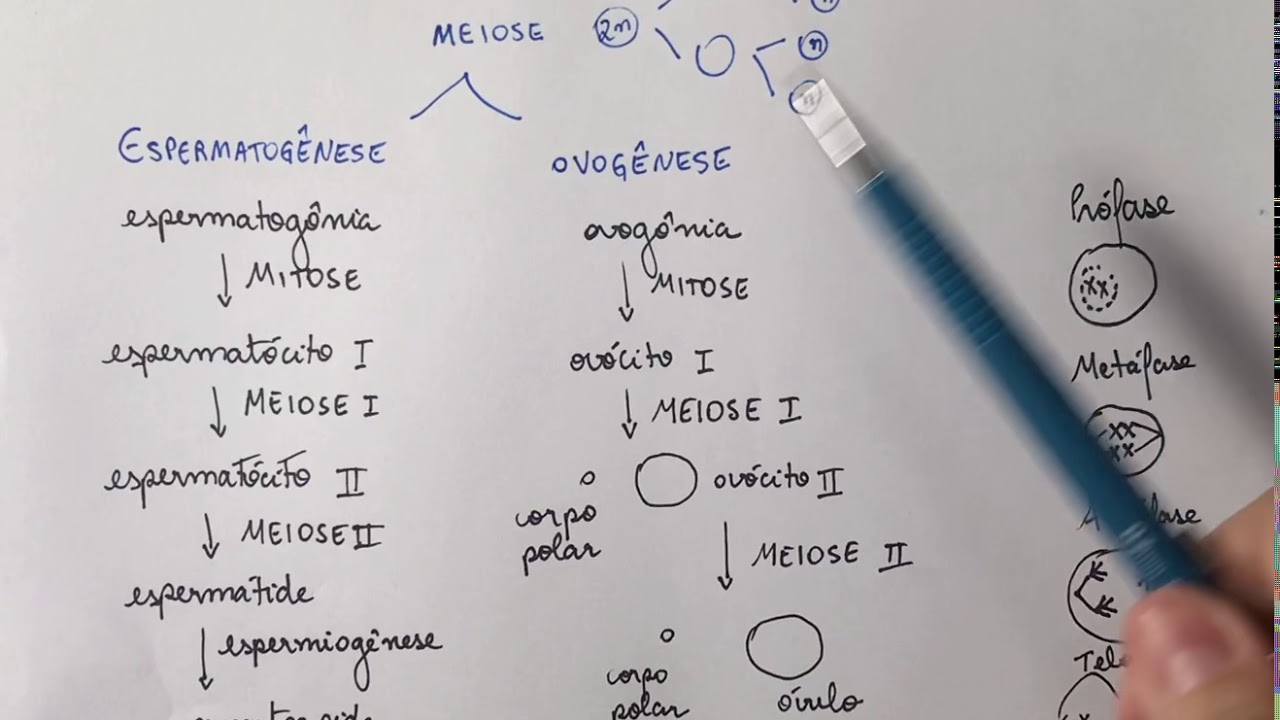 MEIOSE
2n
n
ESPERMATOGÊNESE
espermatogônia
MITOSE
espermatócito I
MEIOSE I
espermatócito II
MEIOSE II
espermátide
espermiogênese
OVOGÊNESE
ovogônia
MITOSE
ovócito I
MEIOSE I
ovócito II
corpo
polar
MEIOSE II
corpo
polar
óvulo
Prófase
Metáfase